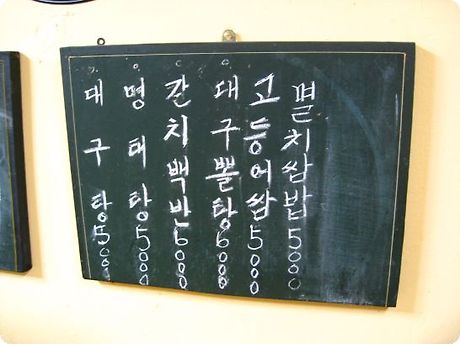 대구탕 5000
명태탕 5000
갈치백반 6000
대구뽈탕 6000
고등어쌈 5000
멸치쌈밥 5000